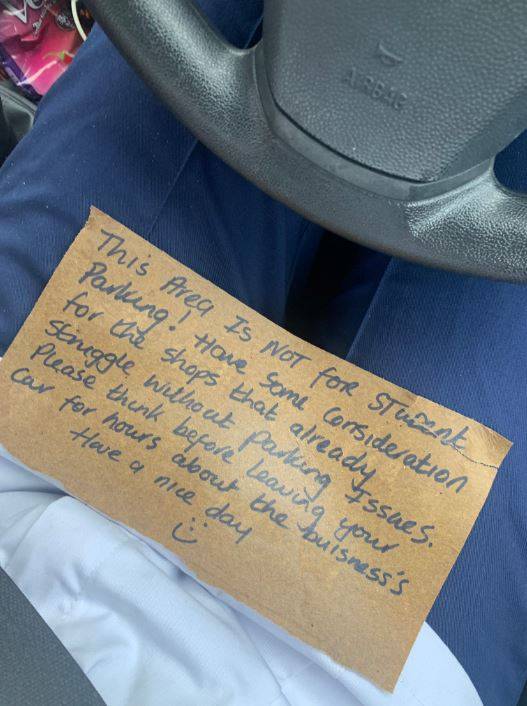 AIRBAG
This Area Is NOT for STudent
Parking! Have Some Consideration
for the shops that already
Struggle without parking Issues.
Please think before leaving your
Car for hours about the buisness's
Have a nice day